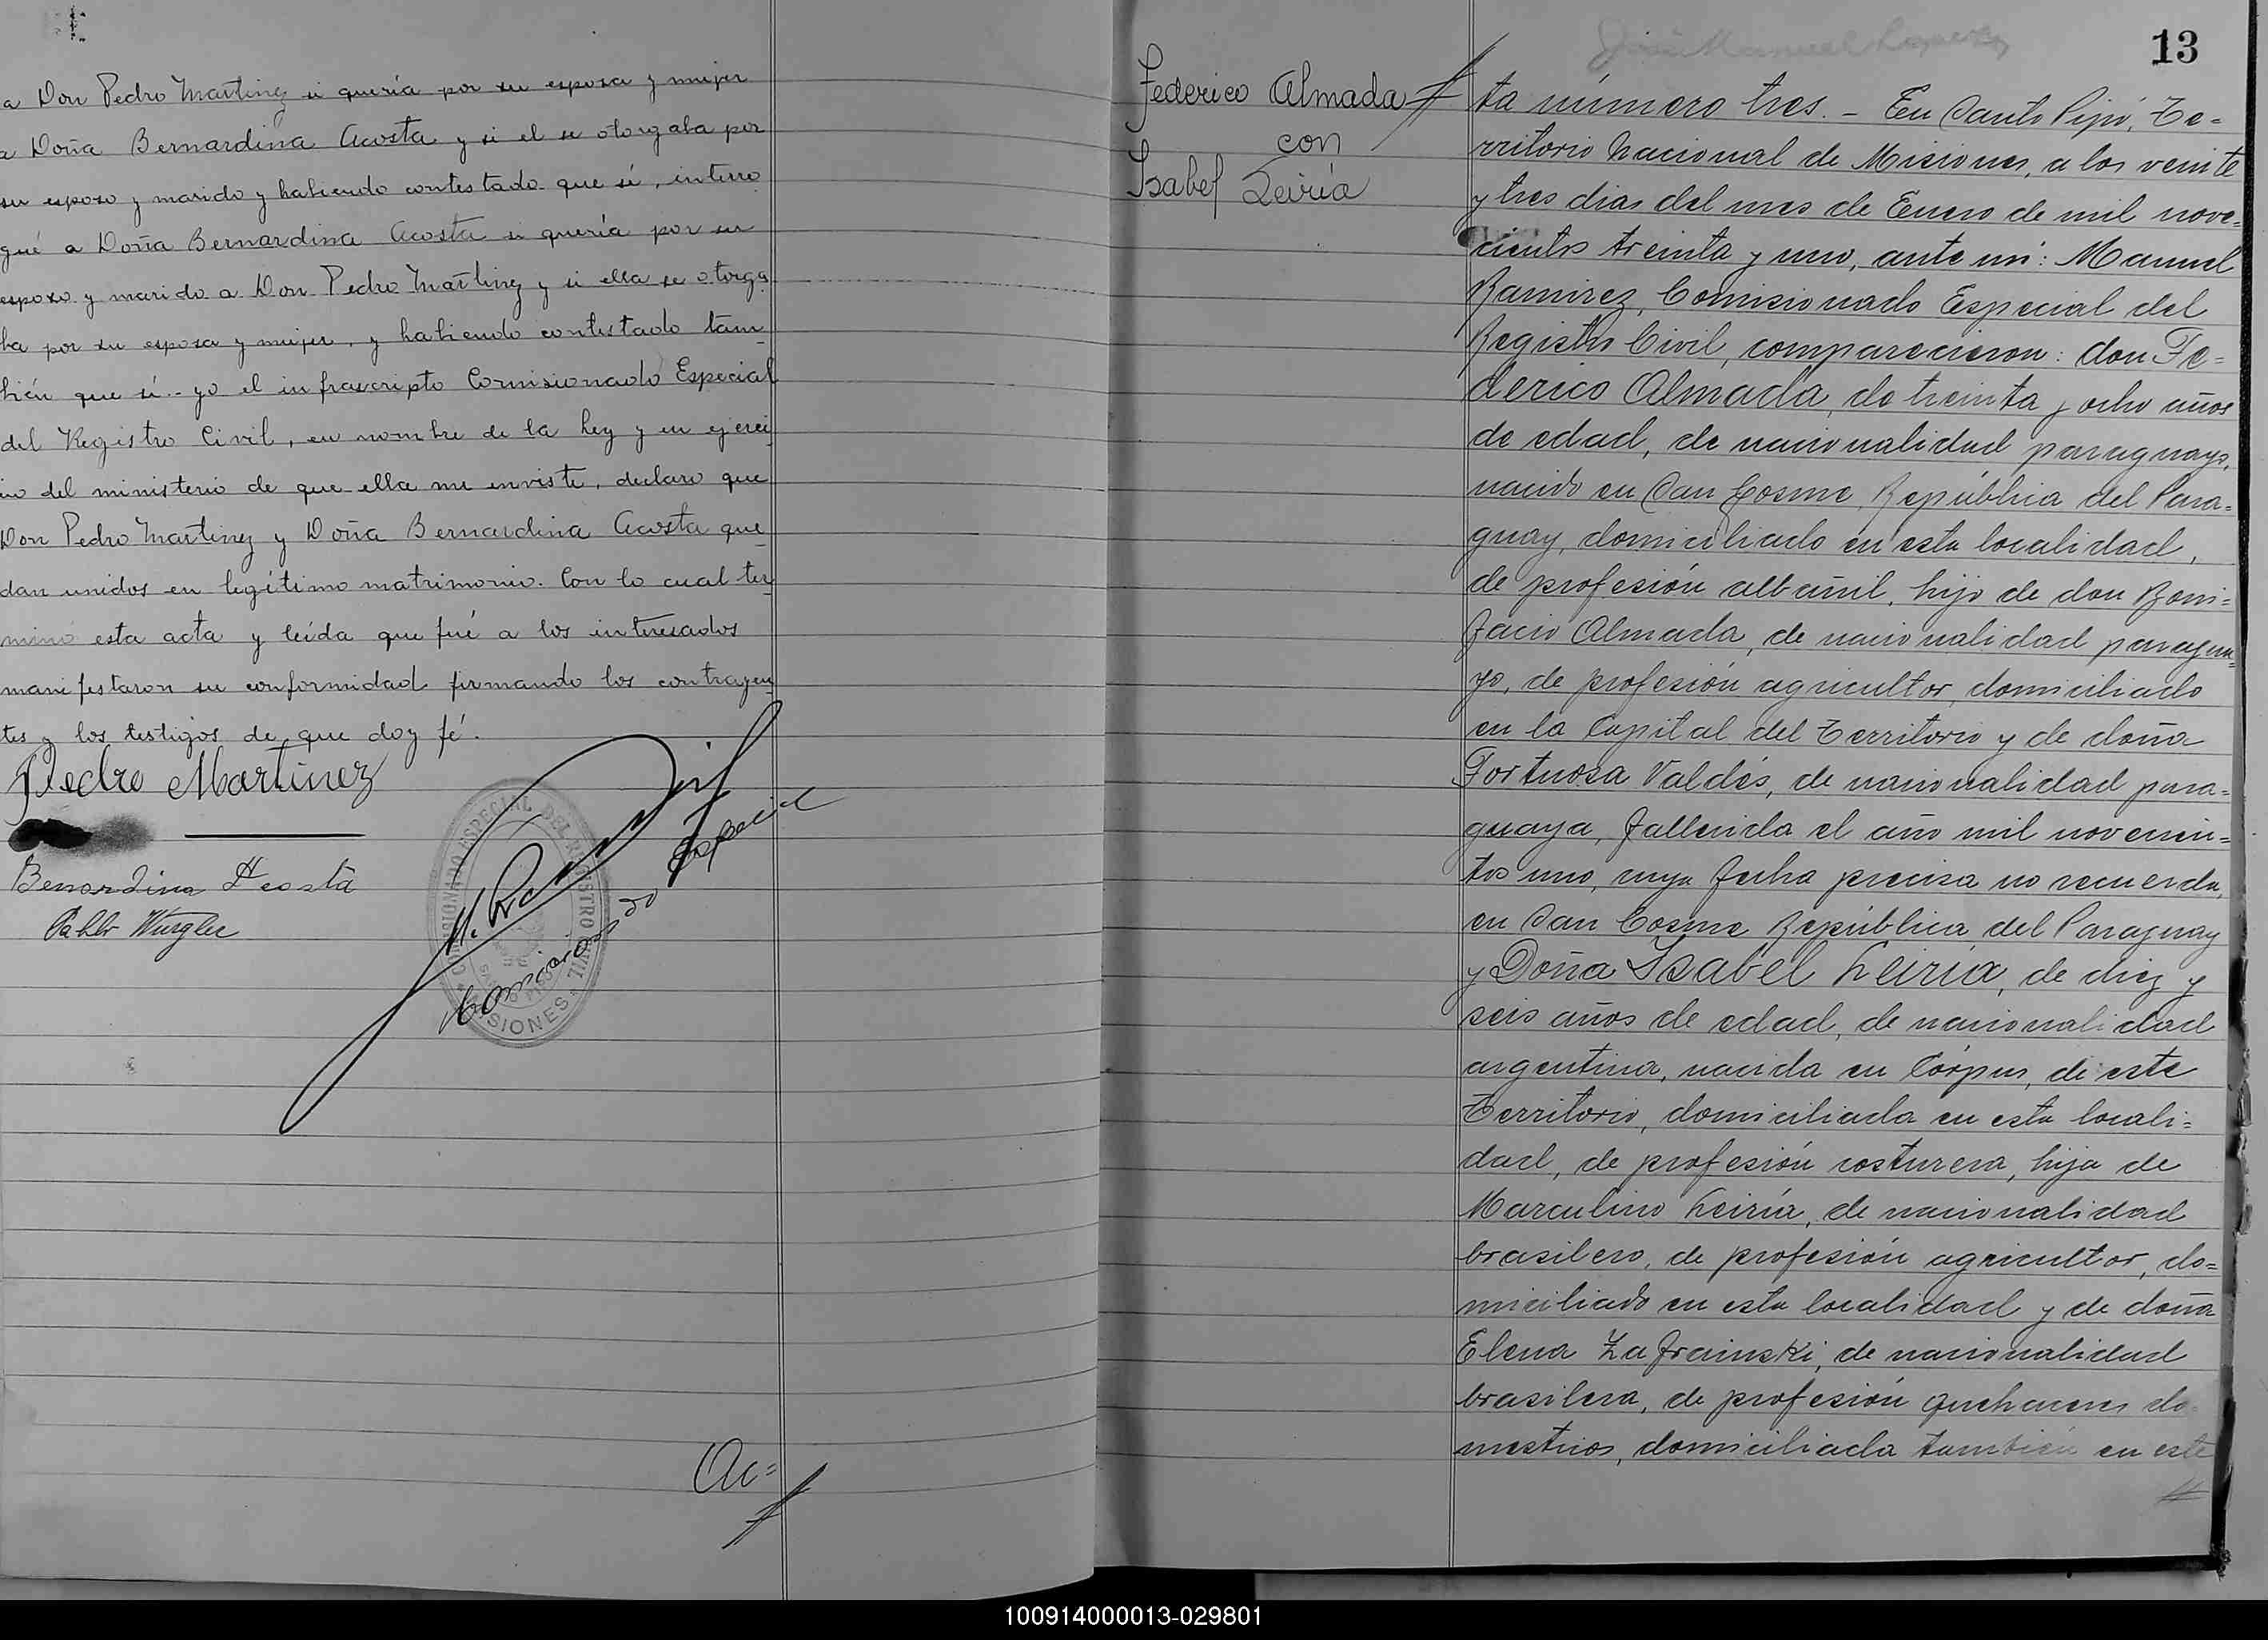 a Don Pedro Martinez si quería por su esposa y mujer
a Doña Bernardina Acosta y si el se otorgaba por
su esposo y marido y habiendo contestado que sí, interro
gué a Doña Bernardina Acosta si quería por su
esposo y marido a Don Pedro Martinez y si ella se otorga
ba por su esposa y mujer, y habiendo contestado tam-
bién que sí.- yo el infrascripto Comisionado Especial
del Registro Civil, en nombre de la ley y en ejerci
cio del ministerio de que ella me enviste, declaro que
Don Pedro Martinez y Doña Bernardina Acosta que-
dan unidos en legítimo matrimonio. Con lo cual ter-
minó esta acta y leída que fué a los interesados
manifestaron su conformidad firmando los contrayen-
tes y los testigos de que doy fé.
Pedro Martinez
Benardina Acosta
Pablo Wurgler
M. Ramirez
Comisionado Especial
COMISIONADO ESPECIAL DEL REGISTRO CIVIL
MISIONES
Ac=
13
Federico Almada
con
Isabel Leiría
ta número tres. - En Santo Pipó, Te=
rritorio Nacional de Misiones, a los veinte
y tres dias del mes de Enero de mil nove=
cientos treinta y uno, ante mí: Manuel
Ramirez, Comisionado Especial del
Registro Civil, comparecieron: don Fe=
derico Almada, de treinta y ocho años
de edad, de nacionalidad paraguayo,
nacido en San Cosme, República del Para=
guay, domiciliado en esta localidad,
de profesión albañil, hijo de don Boni=
facio Almada, de nacionalidad paragua=
yo, de profesión agricultor, domiciliado
en la Capital del Territorio y de doña
Fortuosa Valdés, de nacionalidad para=
guaya, fallecida el año mil novecien=
tos uno, cuya fecha precisa no recuerda,
en San Cosme República del Paraguay
y Doña Isabel Leiría, de diez y
seis años de edad, de nacionalidad
argentina, nacida en Córpus, de este
Territorio, domiciliada en esta locali=
dad, de profesión costurera, hija de
Marculino Leiría, de nacionalidad
brasilero, de profesión agricultor, do=
miciliado en esta localidad y de doña
Elena Zafrainski, de nacionalidad
brasilera, de profesión quehaceres do
mesticos, domiciliada también en este
100914000013-029801